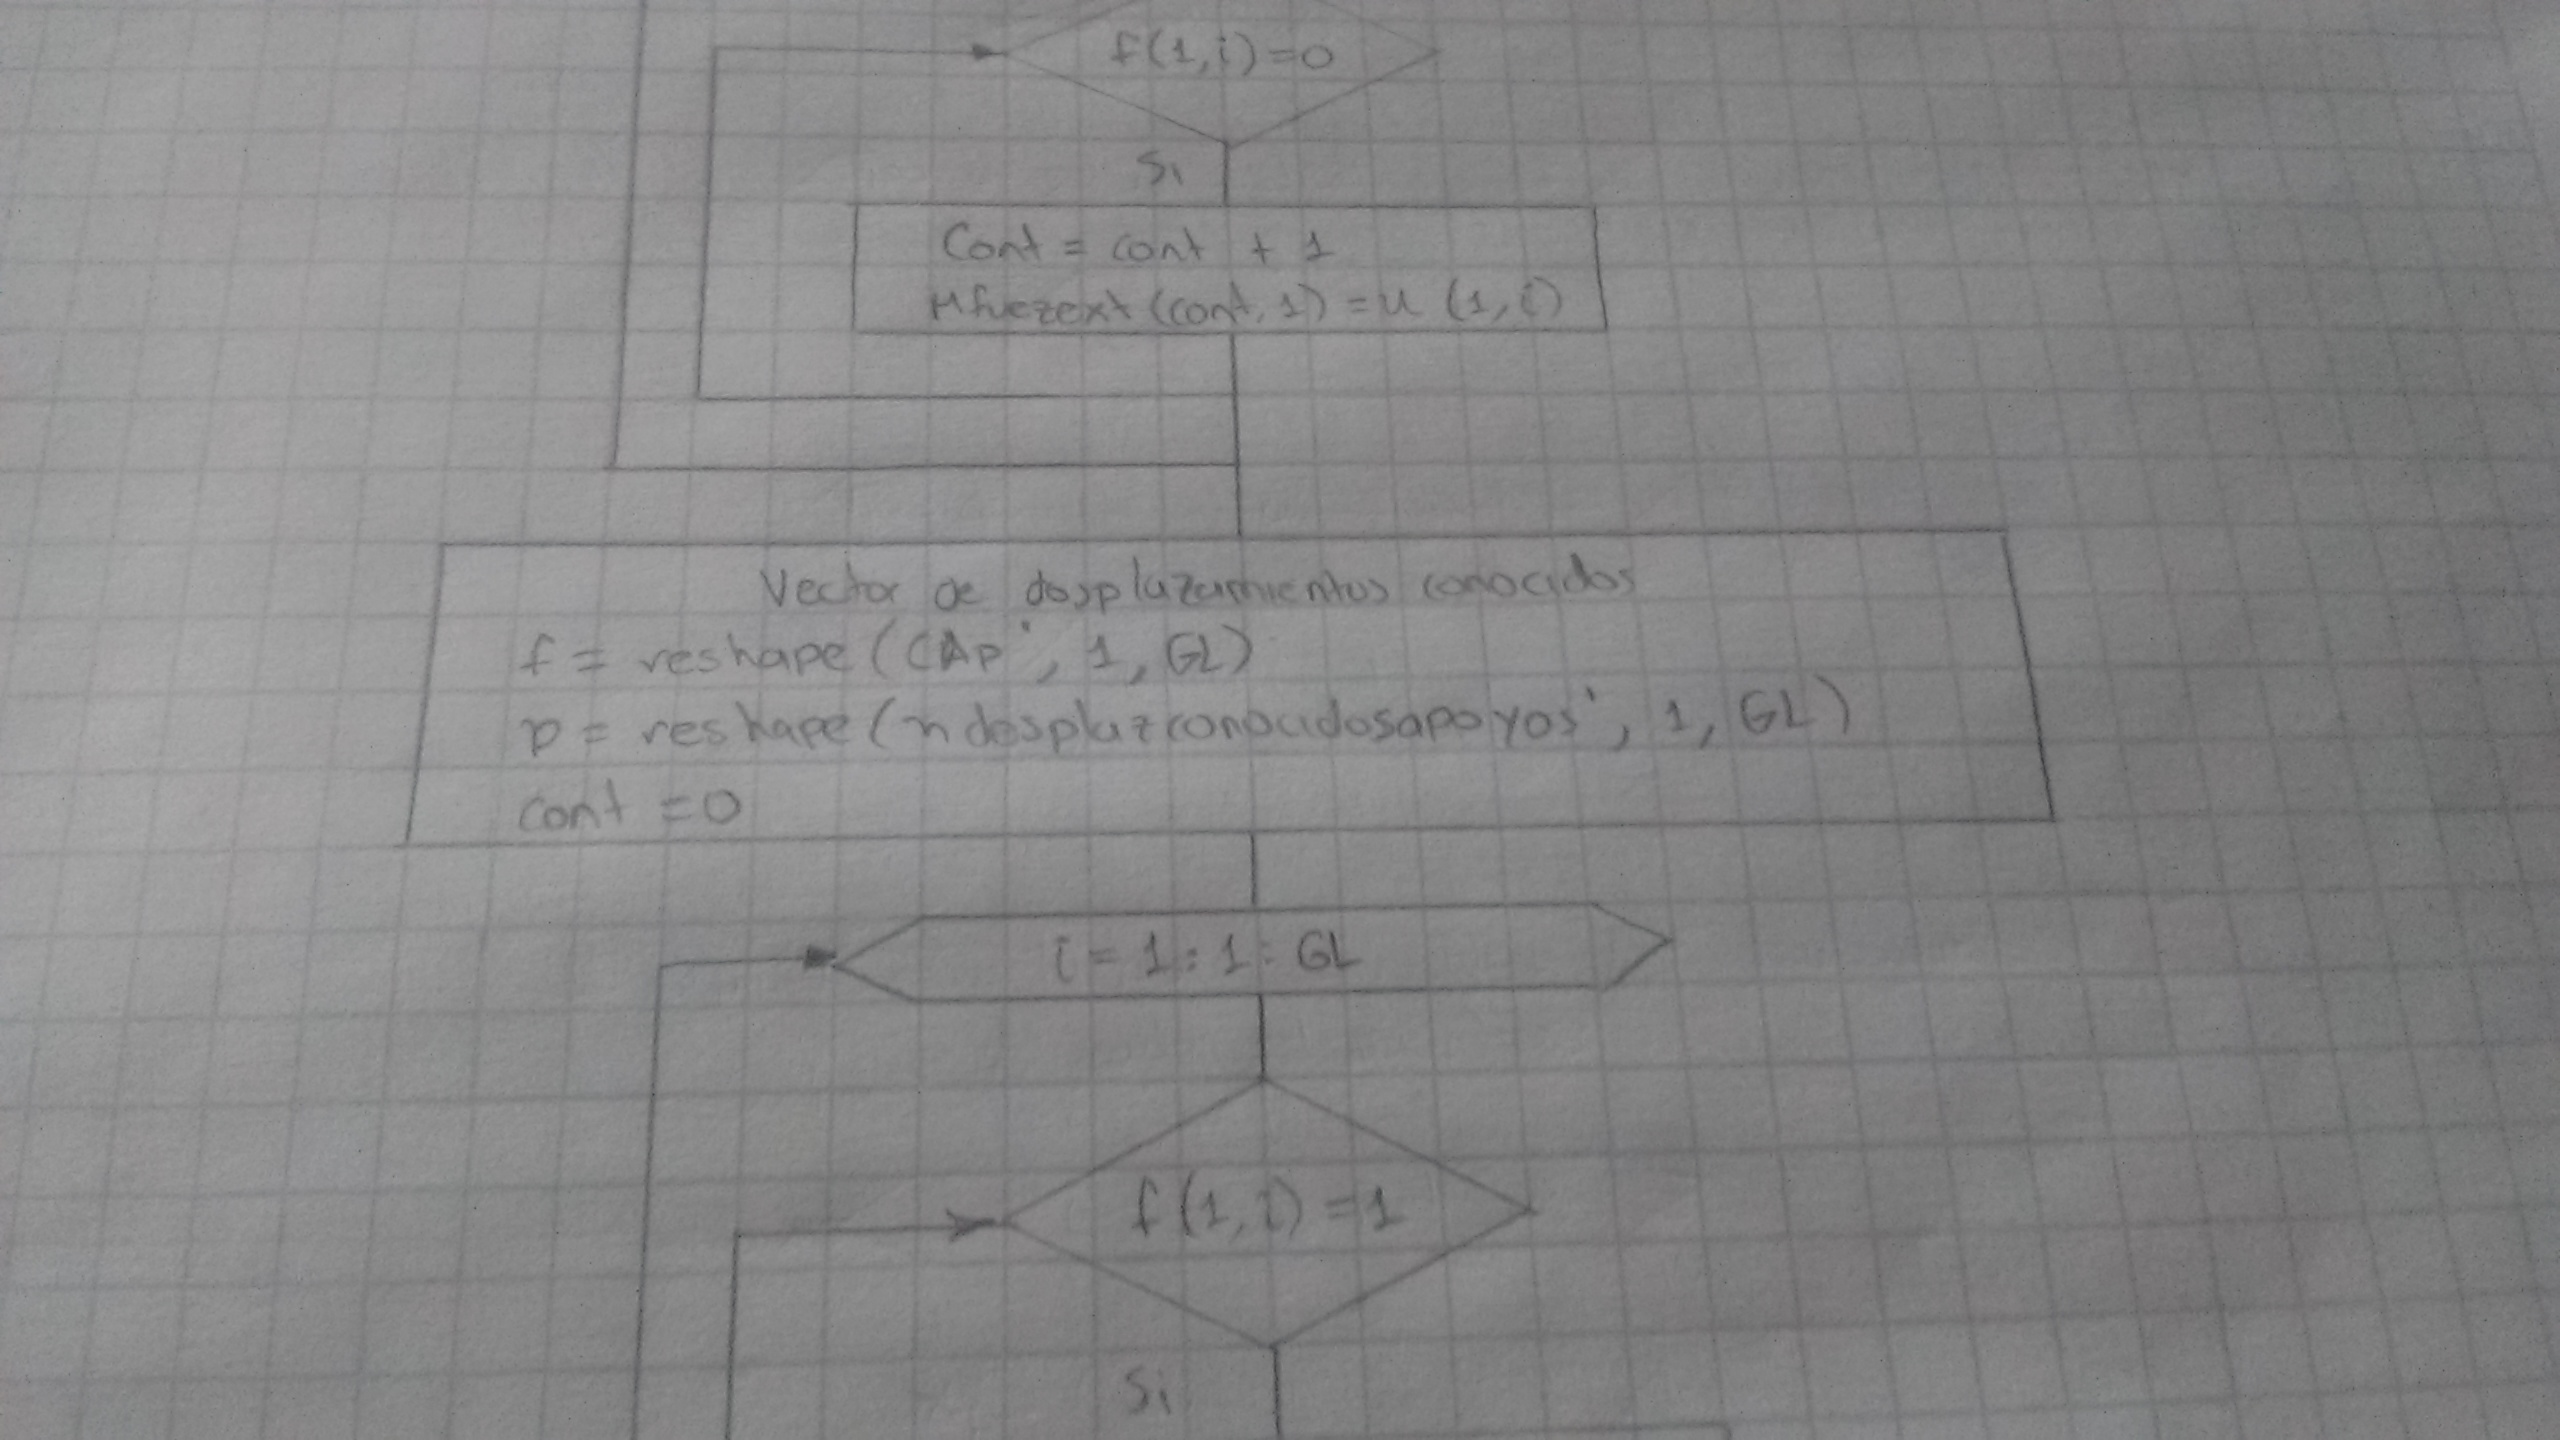 f(1,i)=0
Si
Cont = cont + 1
Mfuezext (cont, 1) = u (1, i)
Vector de desplazamientos conocidos
f = reshape (CAp', 1, GL)
p = reshape (ndesplazconocidosapoyos', 1, GL)
cont = 0
i = 1:1: GL
f (1, i) = 1
Si